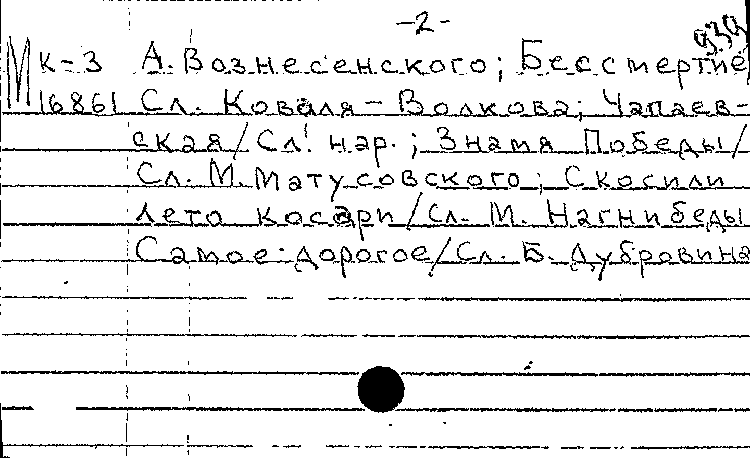 -2-
939
М К-3 А. Вознесенского; Бессмертие
16861 Сл. Коваля-Волкова; Чапаев-
ская/Сл. нар.; Знамя Победы/
Сл. М. Матусовского; Скосили
лето косари/Сл. М. Нагнибеды
Самое дорогое/Сл. Б. Дубровина